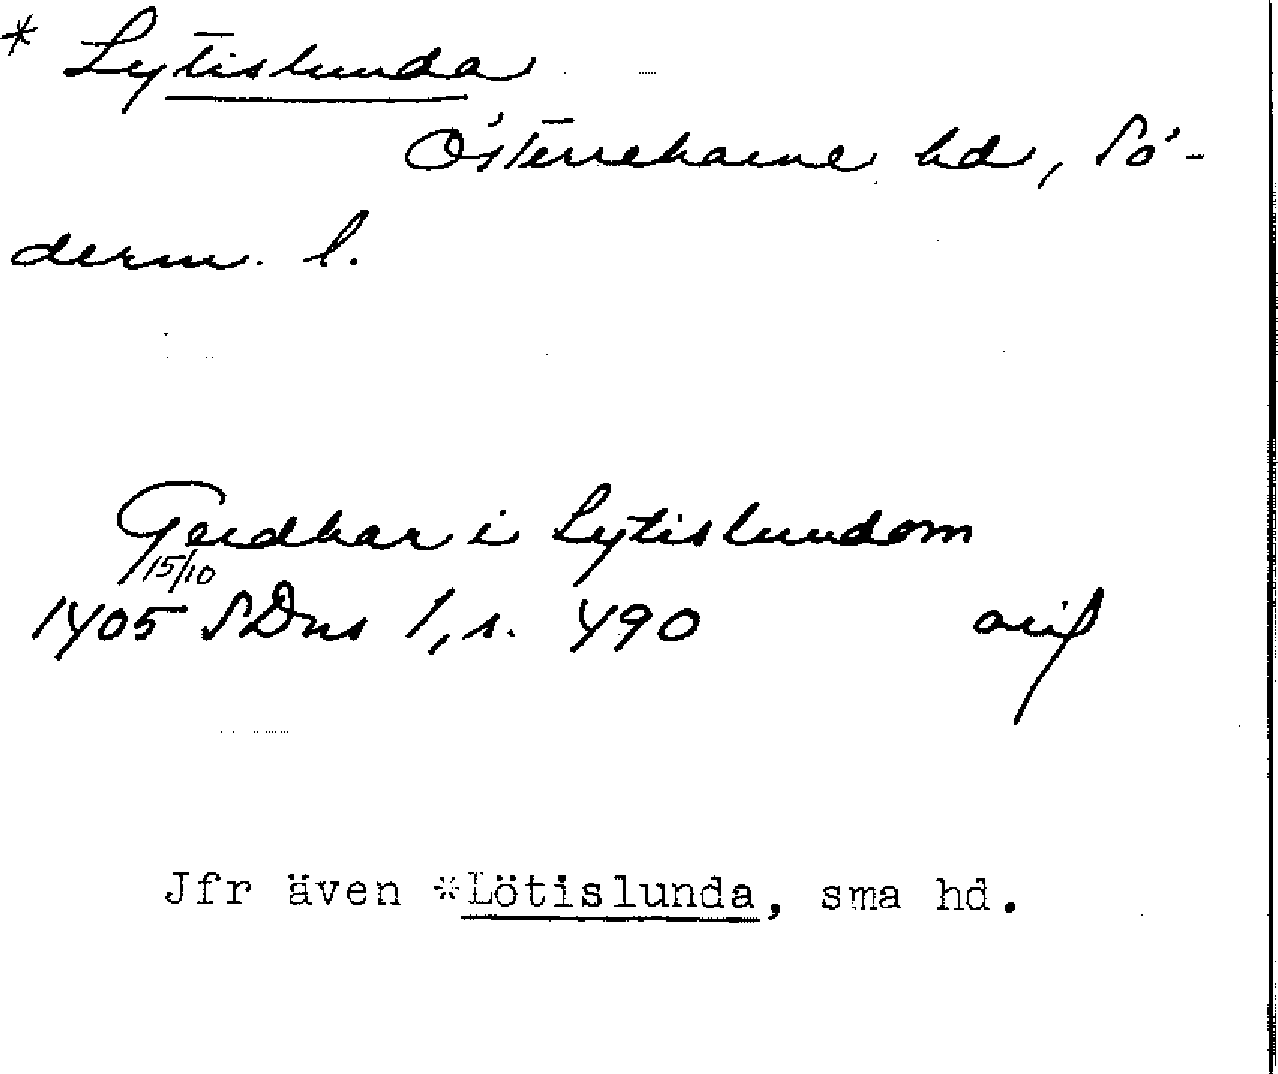 * Lytislunda
Österrekarne hd, Sö-
derm. l.
Gerdhar i Lytislundom
15/10
1405 SDns 1, s. 490 avs
Jfr även *Lötislunda, sma hd.